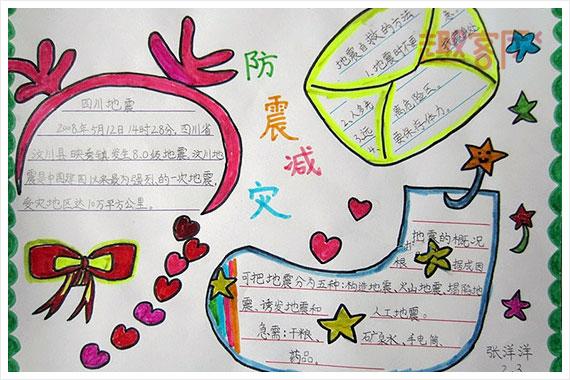 防
震
减
灾
四川地震
2008年5月12日14时28分,四川省
汶川县映秀镇发生8.0级地震,汶川地
震是中国建国以来最为强烈的一次地震,
受灾地区达10万平方公里。
地震自救的方法
1.地震时不要
2.人多先
离危险区。
3.远
4.
要保存体力。
地震的概况
根
据成因
可把地震分为五种:构造地震、火山地震、塌陷地
震、诱发地震和
人工地震。
急需:干粮、
矿泉水、手电筒
药品。
张洋洋
2.3